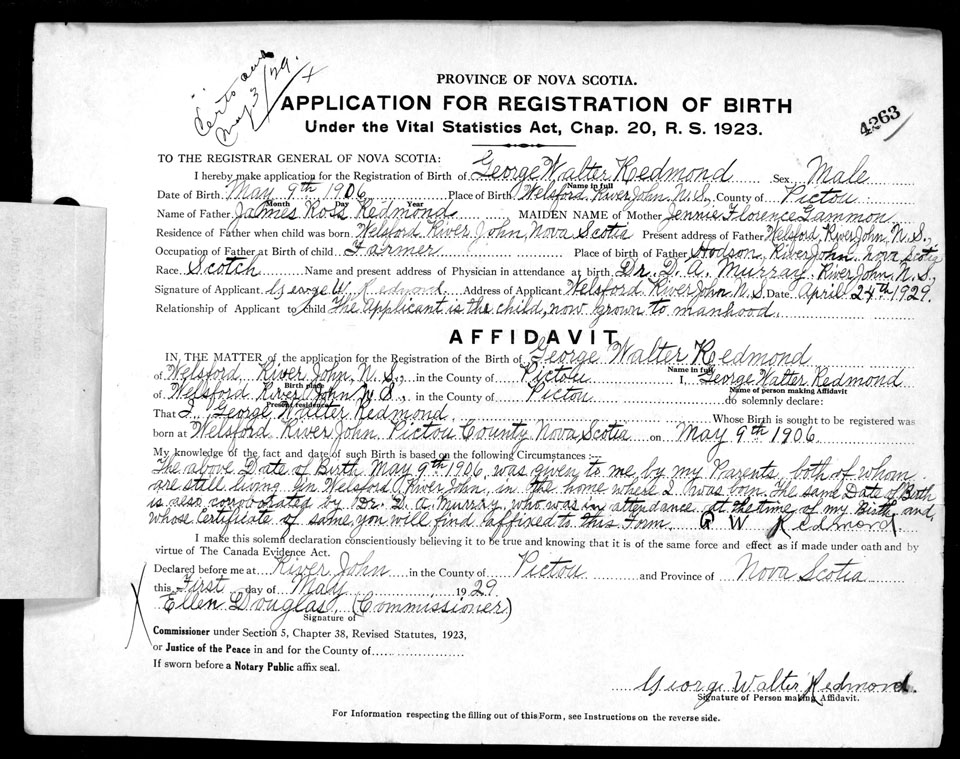 May 3/29.
4263
PROVINCE OF NOVA SCOTIA.
APPLICATION FOR REGISTRATION OF BIRTH
Under the Vital Statistics Act, Chap. 20, R. S. 1923.
TO THE REGISTRAR GENERAL OF NOVA SCOTIA:
I hereby make application for the Registration of Birth of George Walter Redmond Sex Male
Name in full
Date of Birth May 9th 1906 Place of Birth Welsford, River John, N.S., County of Pictou
Month Day Year
Name of Father James Ross Redmond MAIDEN NAME of Mother Jennie Florence Gammon
Residence of Father when child was born Welsford River John, Nova Scotia Present address of Father Welsford, River John, N.S.,
Occupation of Father at Birth of child Farmer Place of birth of Father Hodson, River John, Nova Scotia
Race Scotch Name and present address of Physician in attendance at birth Dr. D. A. Murray. River John, N.S.
Signature of Applicant George W. Redmond Address of Applicant Welsford River John, N.S. Date April 24th 1929.
Relationship of Applicant to child The Applicant is the child, now grown to manhood.
AFFIDAVIT
IN THE MATTER of the application for the Registration of the Birth of George Walter Redmond
Name in full
of Welsford, River John, N.S., in the County of Pictou I, George Walter Redmond
Birth place Name of person making Affidavit
of Welsford River John N.S., in the County of Pictou do solemnly declare:
Present residence
That I George Walter Redmond Whose Birth is sought to be registered was
born at Welsford River John, Pictou County Nova Scotia on May 9th 1906
My knowledge of the fact and date of such Birth is based on the following Circumstances :--
The above Date of Birth May 9th 1906 was given to me by my Parents, both of whom
are still living in Welsford, River John, in the home where I was born. The same Date of Birth
is also corroborated by Dr. D. A. Murray, who was in attendance at the time of my Birth and,
whose Certificate of same, you will find affixed to this Form. G W Redmond.
I make this solemn declaration conscientiously believing it to be true and knowing that it is of the same force and effect as if made under oath and by
virtue of The Canada Evidence Act.
Declared before me at River John in the County of Pictou and Province of Nova Scotia
this First day of May 1929
Ellen Douglas, (Commissioner)
Signature of
Commissioner under Section 5, Chapter 38, Revised Statutes, 1923,
or Justice of the Peace in and for the County of
If sworn before a Notary Public affix seal.
George Walter Redmond.
Signature of Person making Affidavit.
For Information respecting the filling out of this Form, see Instructions on the reverse side.